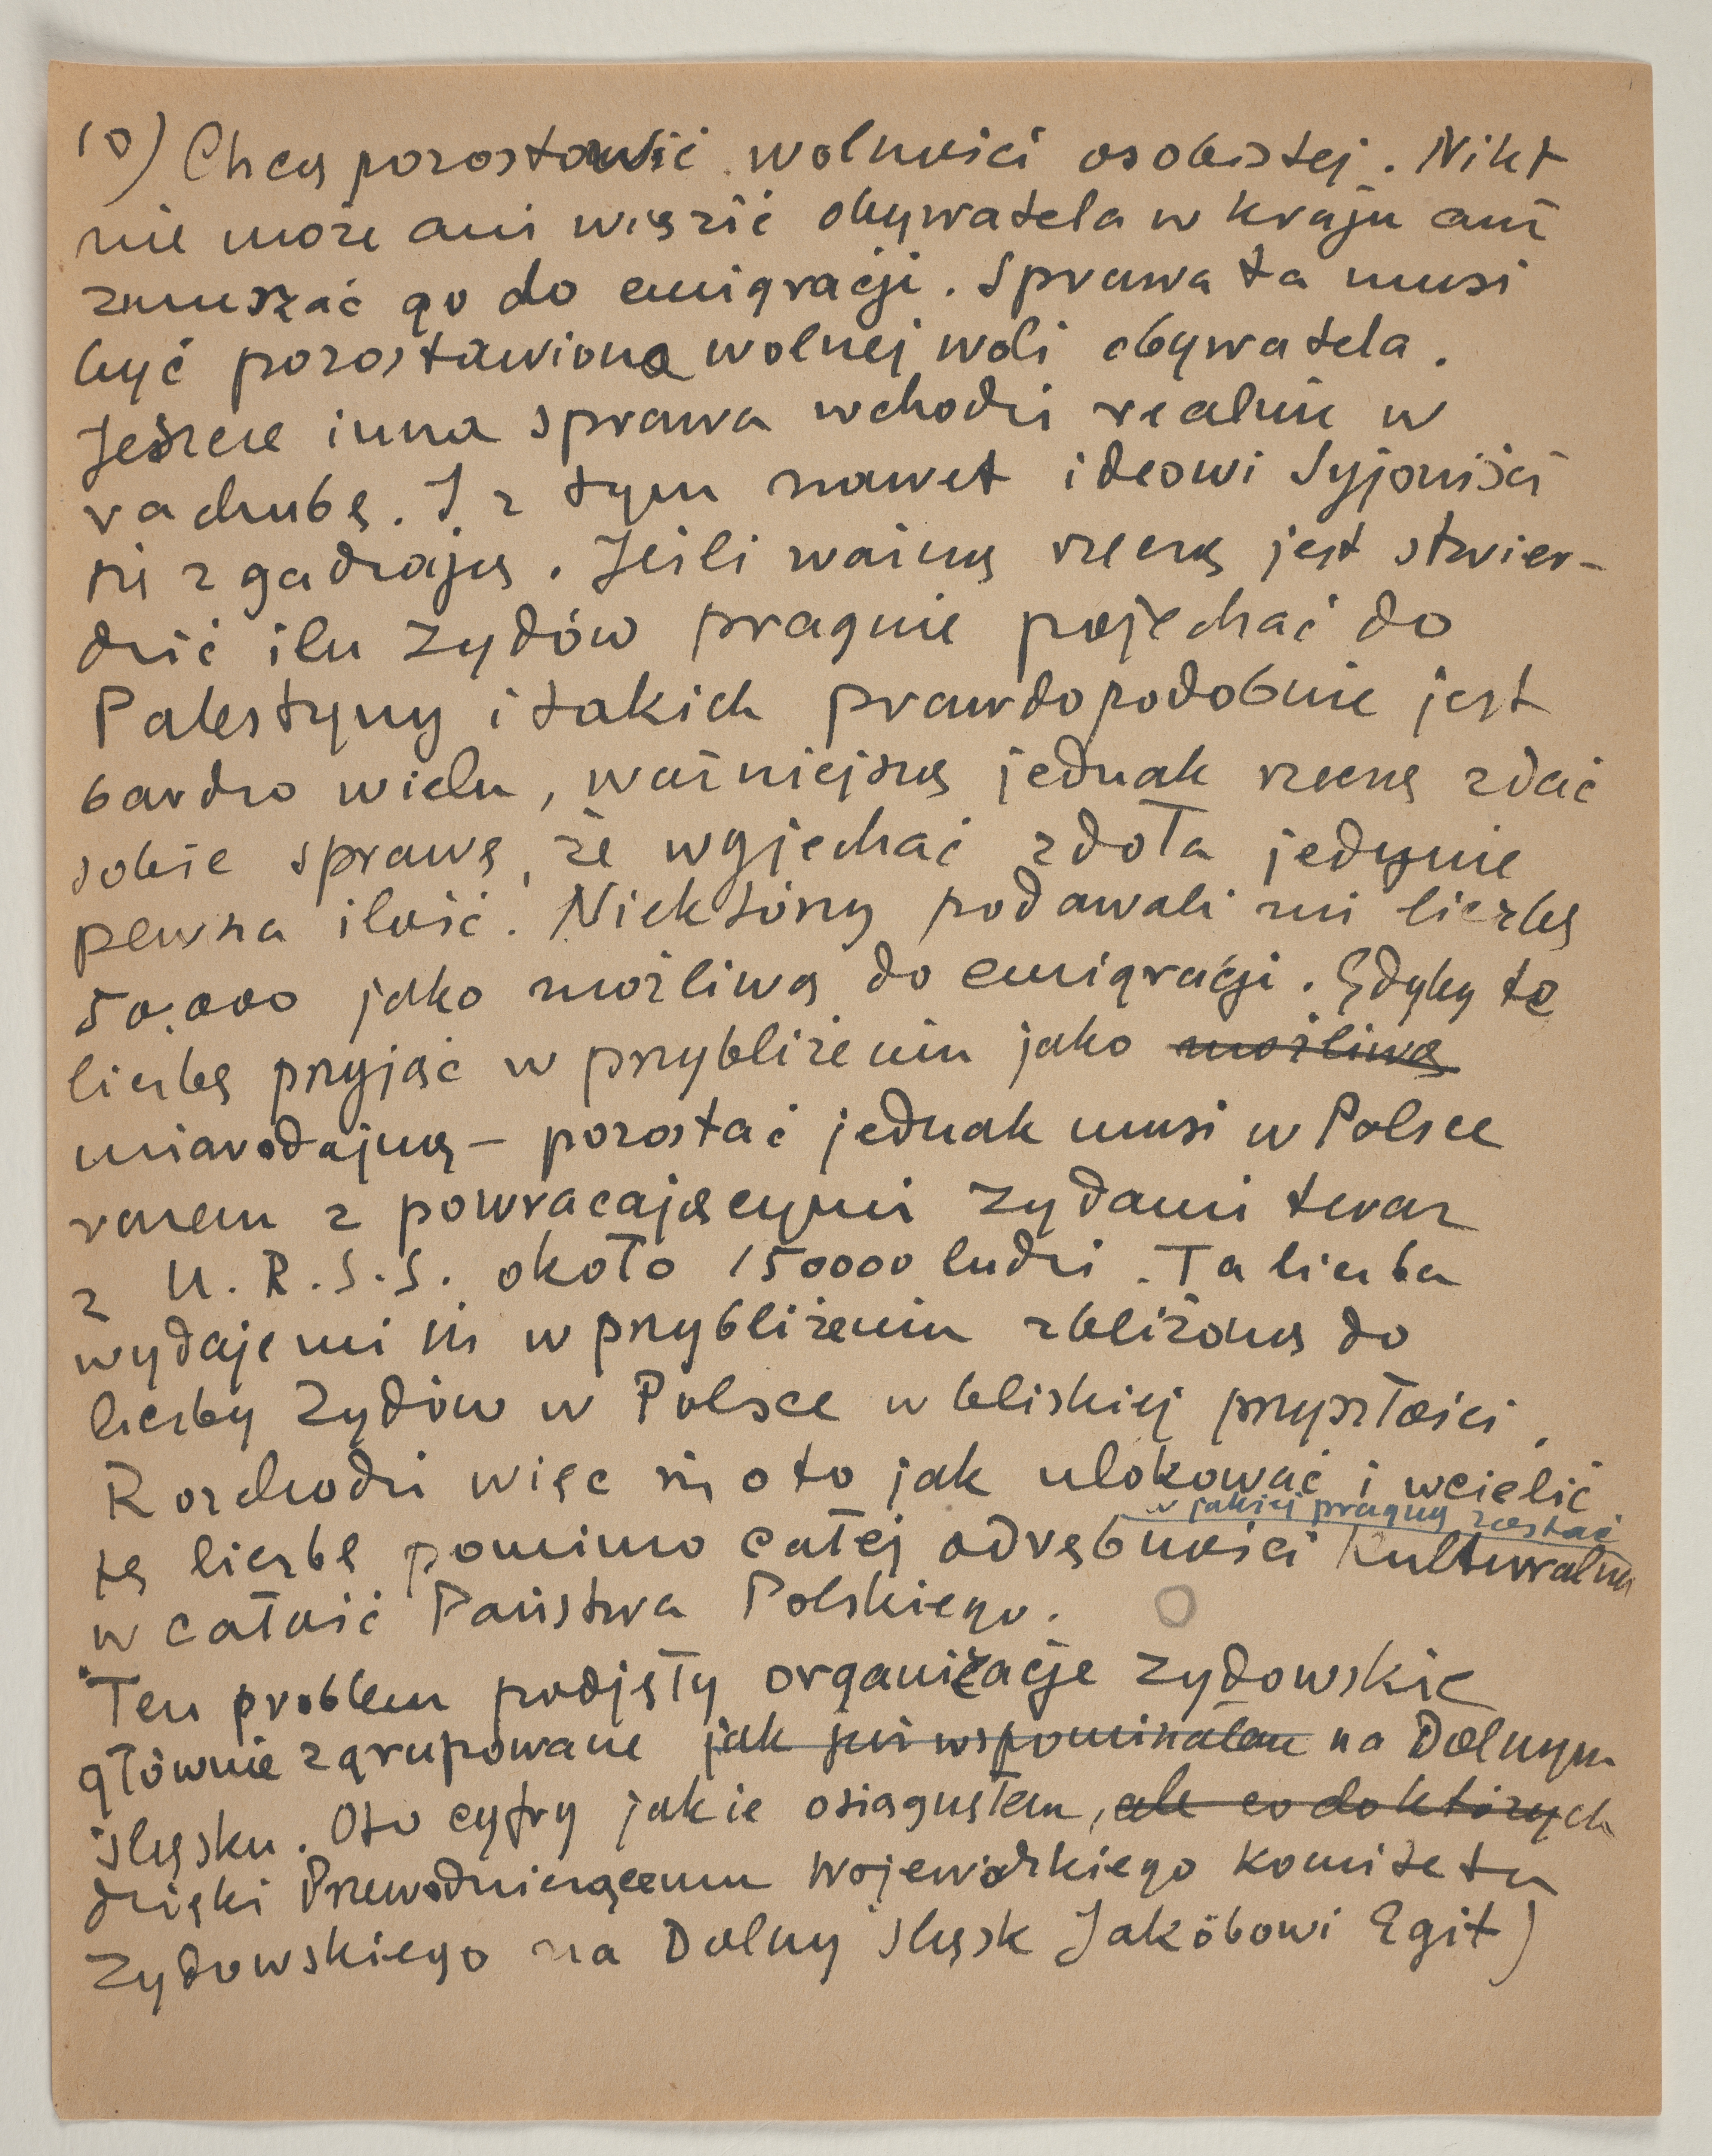 10) Chcą pozostawić wolności osobistej. Nikt
nie może ani więzić obywatela w kraju ani
zmuszać go do emigracji. Sprawa ta musi
być pozostawiona wolnej woli obywatela.
Jeszcze inna sprawa wchodzi realnie w
rachubę. I z tym nawet ideowi Syjoniści
się zgadzają. Jeśli ważną rzeczą jest stwier-
dzić ilu Żydów pragnie pojechać do
Palestyny i takich prawdopodobnie jest
bardzo wielu, ważniejszą jednak rzeczą zdać
sobie sprawę, że wyjechać zdoła jedynie
pewna ilość. Niektórzy podawali mi liczbę
50.000 jako możliwą do emigracji. Gdyby tę
liczbę przyjąć w przybliżeniu jako możliwą
miarodajną – pozostać jednak musi w Polsce
razem z powracającymi Żydami teraz
z U.R.S.S. około 150000 ludzi. Ta liczba
wydaje mi się w przybliżeniu zbliżoną do
liczby Żydów w Polsce w bliskiej przyszłości.
Rozchodzi więc się o to jak ulokować i wcielić
w jakiej pragną zostać
tę liczbę pomimo całej odrębności kulturalnej
w całość Państwa Polskiego.
Ten problem podjęły organizacje żydowskie
głównie zgrupowane jak już wspominałem na Dolnym
Śląsku. Oto cyfry jakie osiągnąłem, ale co do których
dzięki Przewodniczącemu Wojewódzkiego Komitetu
Żydowskiego na Dolny Śląsk Jakóbowi Egit)